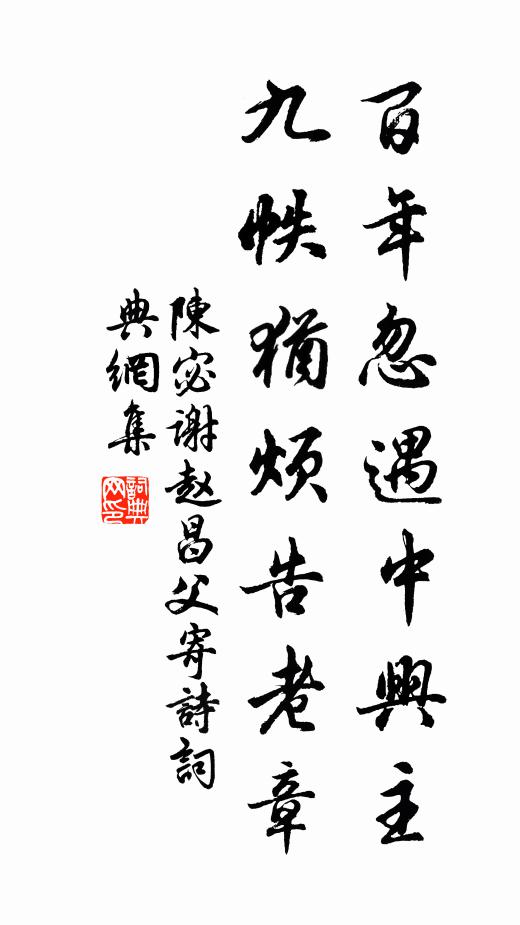 百年忽遇中興主
九帙猶煩告老章
陳宓謝赵昌父寄詩詞
典網集
詞典网印